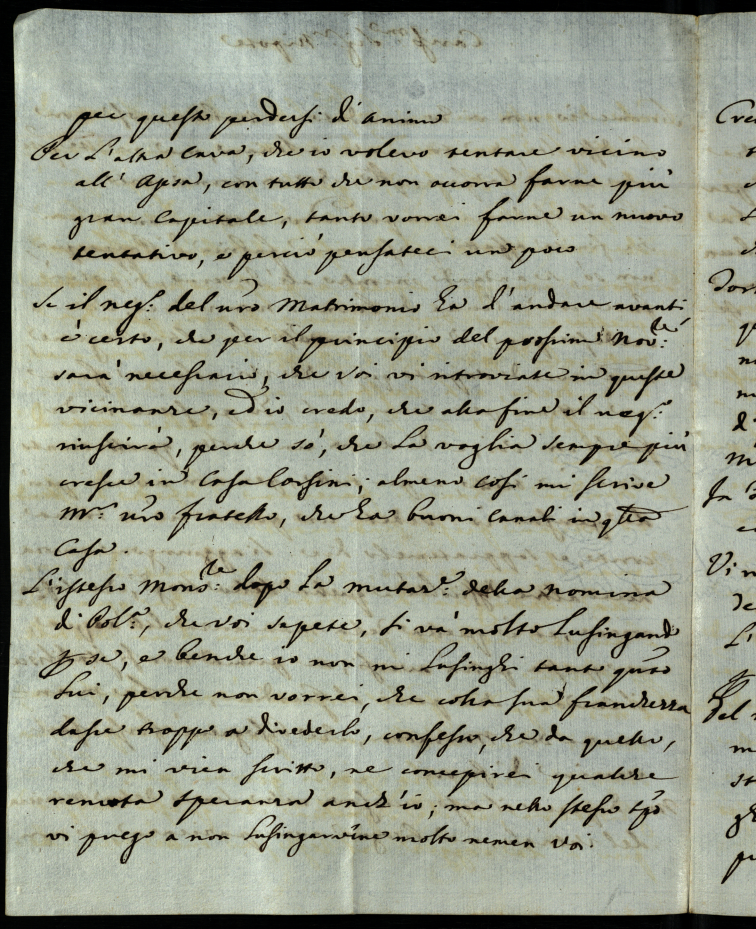 per questo perdersi d'animo
Per l'altra Cava, che io volevo tentare vicino
all' Apsa, con tutto che non occorra farne più
gran Capitale, tanto vorrei farne un nuovo
tentativo, e perciò pensateci un poco
Se il neg.º del vro Matrimonio ha d'andare avanti
è certo, che per il principio del prossimo Nov.re
sarà necessario, che Voi vi ritroviate in queste
vicinanze, ed io credo, che alla fine il neg.º
riuscirà, perche sò, che la voglia sempre più
cresce in Casa; almeno così mi scrive
M.r vro fratello, che ha buoni Canali in qta
Casa.
L'istesso Mons.re dopo la mutaz.e della nomina
di Pol.a, che voi sapete, si và molto lusingando
per se, e benche io non mi lusinghi tanto qnto
lui, perche non vorrei, che colla sua franchezza
dasse troppo a divederlo, confesso, che da quello,
che mi vien scritto, ne concepirei qualche
remota speranza anch'io; ma nello stesso tpo
vi prego a non lusingarvene molto nemen Voi.
Cre
Vi
L'
Del